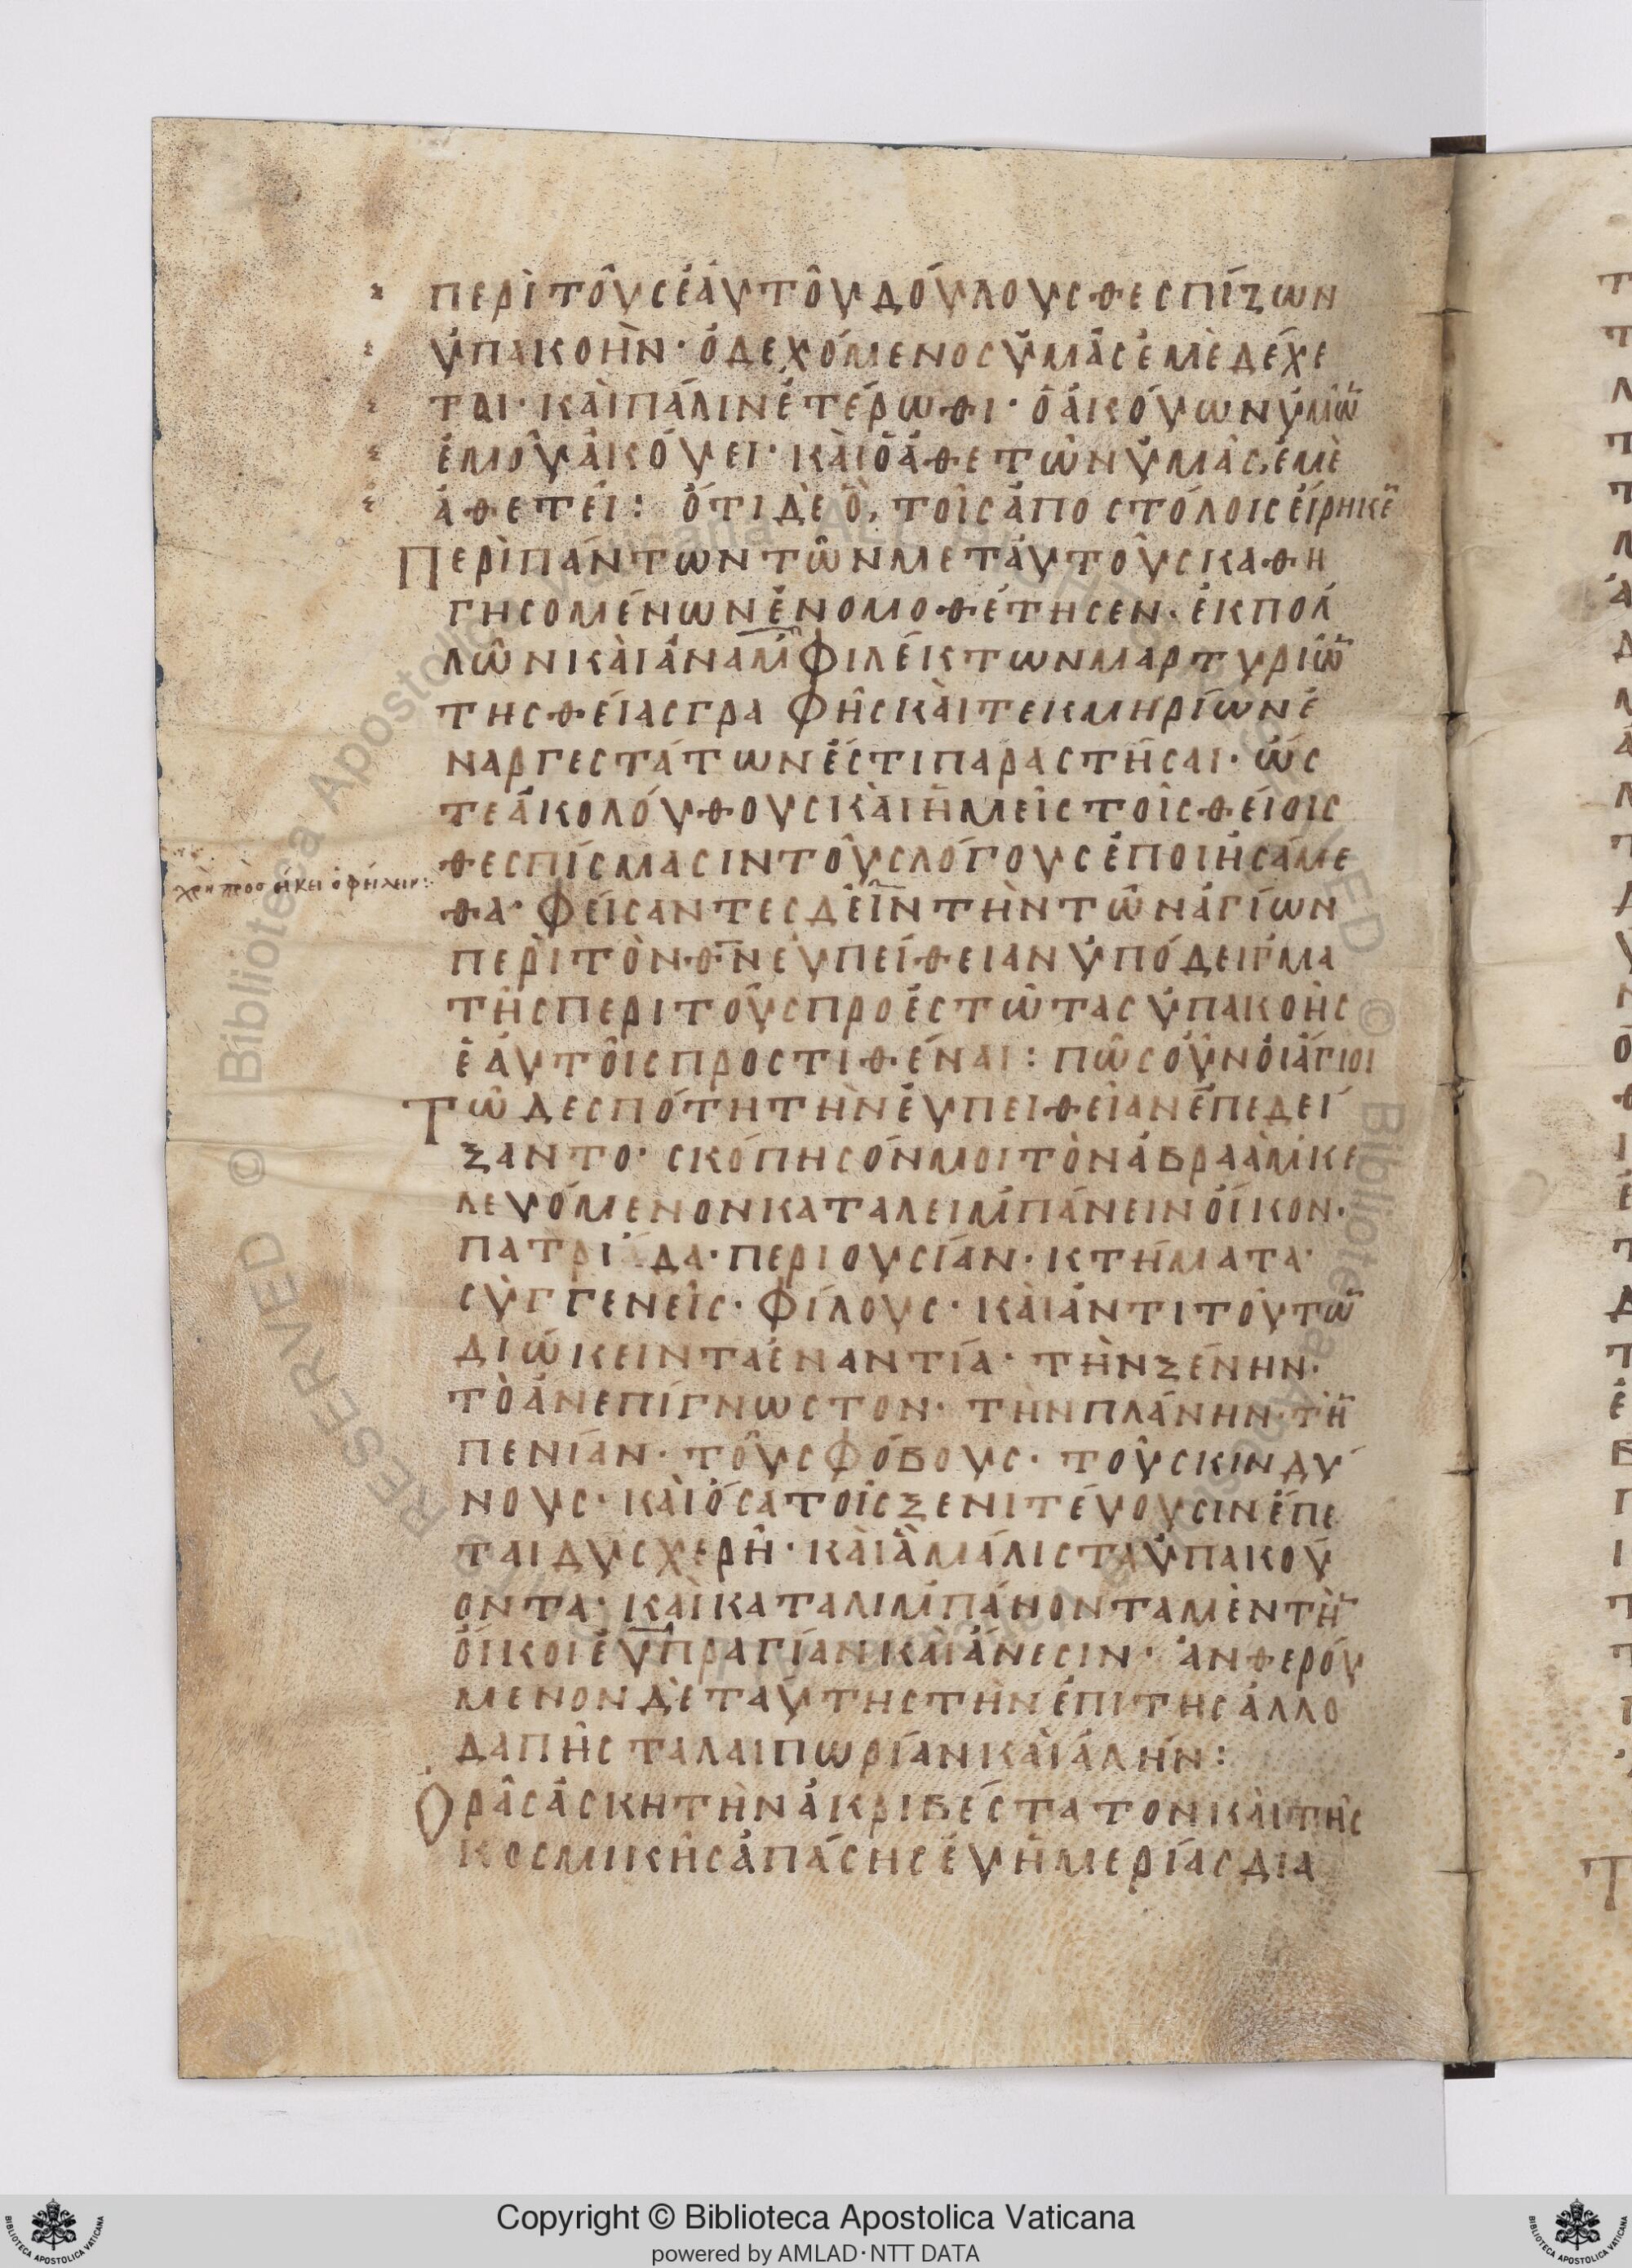 περὶ τοὺς ἑαυτοῦ δούλους θεσπίζων
ὑπακοὴν· ὁ δεχόμενος ὑμᾶς ἐμὲ δέχε
ται· καὶ πάλιν ἑτέρωθι· ὁ ἀκούων ὑμῶ̅
ἐμοῦ ἀκούει· καὶ ὁ ἀθετῶν ὑμᾶς, ἐμὲ
ἀθετεῖ: ὅτι δὲ ὃ, τοῖς ἀποστόλοις εἴρηκε̅
Περὶ πάντων τῶν μετ αὐτοὺς καθη
γησομένων ἐνομοθέτησεν. ἐκ πολ
λῶν καὶ ἀναμφιλέκτων μαρτυριῶ̅
της θείας γραφῆς καὶ τεκμηρίων ἐ
ναργεστάτων ἐστι παραστῆσαι· ὥς
τε ἀκολούθους καὶ ἡμεῖς τοῖς θείοις
θεσπίσμασιν τοὺς λόγους ἐποιησάμε
χρὴ προσήκει ὀφήλειν:
θα· φείσαντες δεῖν τὴν τῶν ἁγίων
περὶ τὸν θ̅ν̅ εὐπείθειαν ὑπόδειγμα
τῆς περι τοὺς προεστῶτας ὑπακοῆς
ἑαυτοῖς προστιθέναι: πῶς οὖν οἱ ἅγιοι
Τῶ δεσπότη τὴν εὐπειθείαν ἐπεδεί
ξαντο· σκόπησόν μοι τὸν ἀβραὰμ κε
λευόμενον καταλειμπάνειν οἶκον·
πατρίδα· περιουσίαν· κτήματα·
συγγενεῖς· φίλους· καὶ ἀντι τούτω̅
διώκειν τα ἐναντία· τὴν ξένην·
τὸ ἀνεπίγνωστον· τὴν πλάνην· τὴ̅
πενίαν· τοὺς φόβους· τοὺς κινδύ
νους· καὶ ὅσα τοῖς ξενιτέυουσιν ἕπε
ται δυσχερῆ· καὶ ἃ μάλιστα ὑπακού
οντα· καὶ καταλιμπάνοντα μὲν τὴ̅
οἴκοι εὐπραγίαν καὶ ἄνεσιν· ἀνθερού
μενον δὲ ταύτης τὴν ἐπι της ἀλλο
δαπῆς ταλαιπωρίαν καὶ ἄλην:
Ὁρᾶς ἀσκητὴν ἀκριβέστατον καὶ τῆς
κοσμικῆς ἁπάσης εὐημερίας δια
Copyright © Biblioteca Apostolica Vaticana
powered by AMLAD·NTT DATA